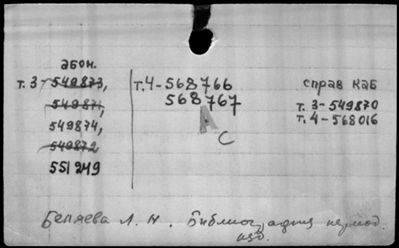 абон.
т. 3-549873,
549871,
549874,
549872
551249
т. 4-568766
568767
А
С
справ каб
т. 3-549870
т. 4-568016
Беляева Л. Н. Библиография период.
изд.